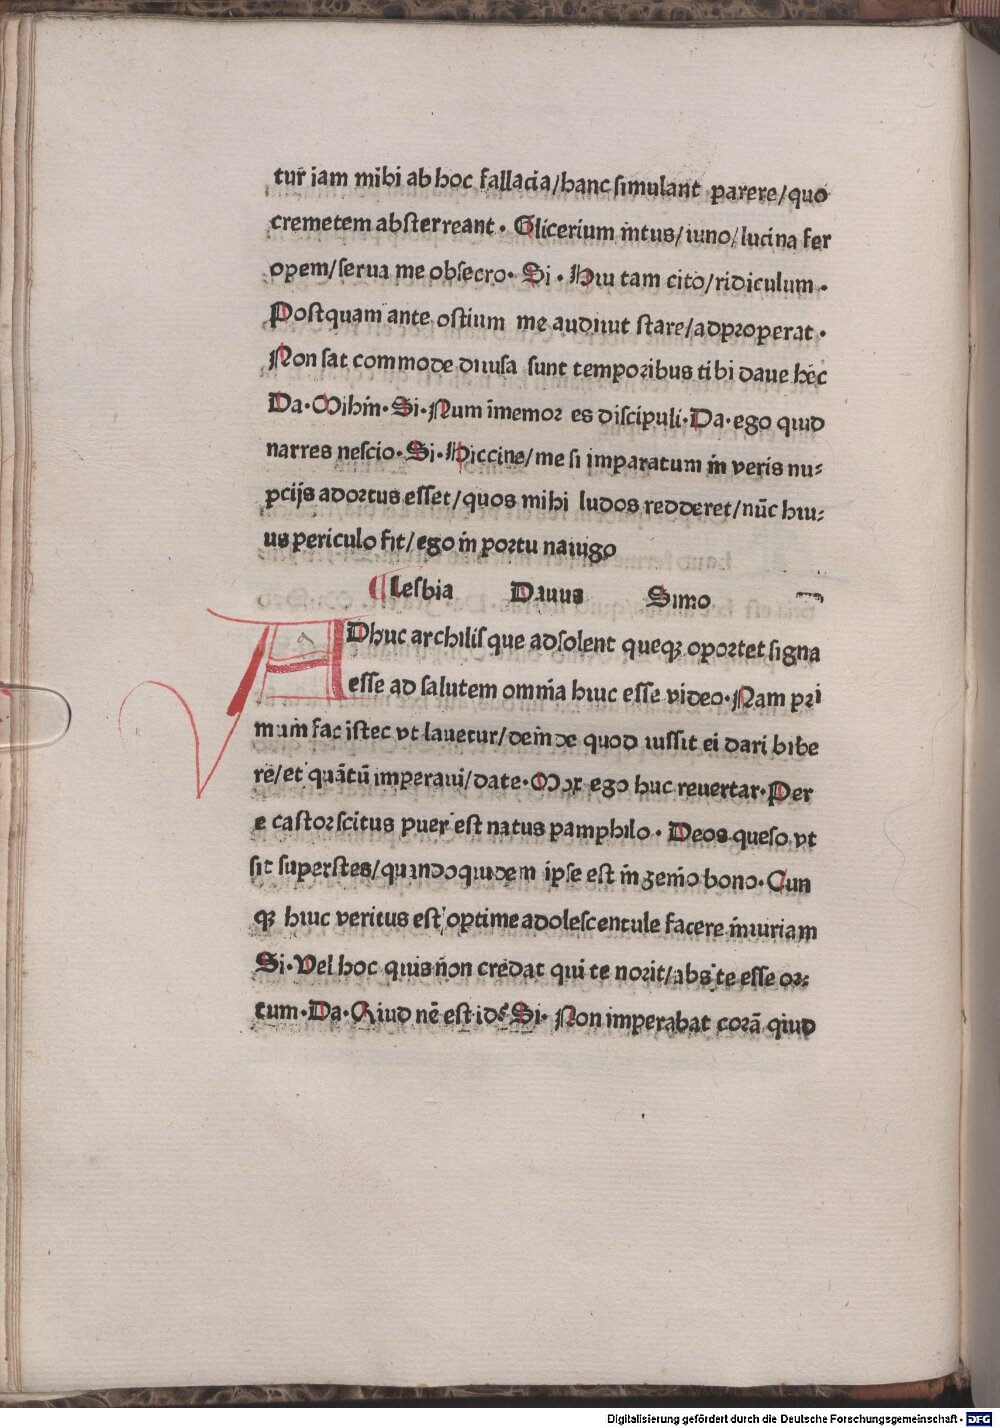 tur̄ iam mihi ab hoc fallacia/hanc simulant parere/quo
cremetem absterreant· Glicerium intus/iuno/lucina fer
opem/serua me obsecro· Si· Hui tam cito/ridiculum·
Postquam ante ostium me audiuit stare/adproperat·
Non sat commode diuisa sunt temporibus tibi daue hec
Da·Mihin·Si·Num īmemor es discipuli·Da·ego quid
narres nescio·Si·Hiccine/me si imparatum in veris nu⸗
pcijs adortus esset/quos mihi ludos redderet/nūc hui⸗
us periculo fit/ego in portu nauigo
Lesbia Dauus Simo
ADhuc archilis que adsolent queqꝫ oportet signa
esse ad salutem omnia huic esse video·Nam pri
mum fac istec vt lauetur/deinde quod iussit ei dari bibe
re/et quātū imperaui/date·Mox ego huc reuertar·Per
e castor scitus puer est natus pamphilo· Deos queso vt
sit superstes/quandoquidem ipse est in genio bono·Cun
qꝫ huic veritus est optime adolescentule facere iniuriam
Si·Vel hoc quis non credat qui te norit/abs te esse or⸗
tum·Da·Quid nē est id Si· Non imperabat corā quid
Digitalisierung gefördert durch die Deutsche Forschungsgemeinschaft - DFG